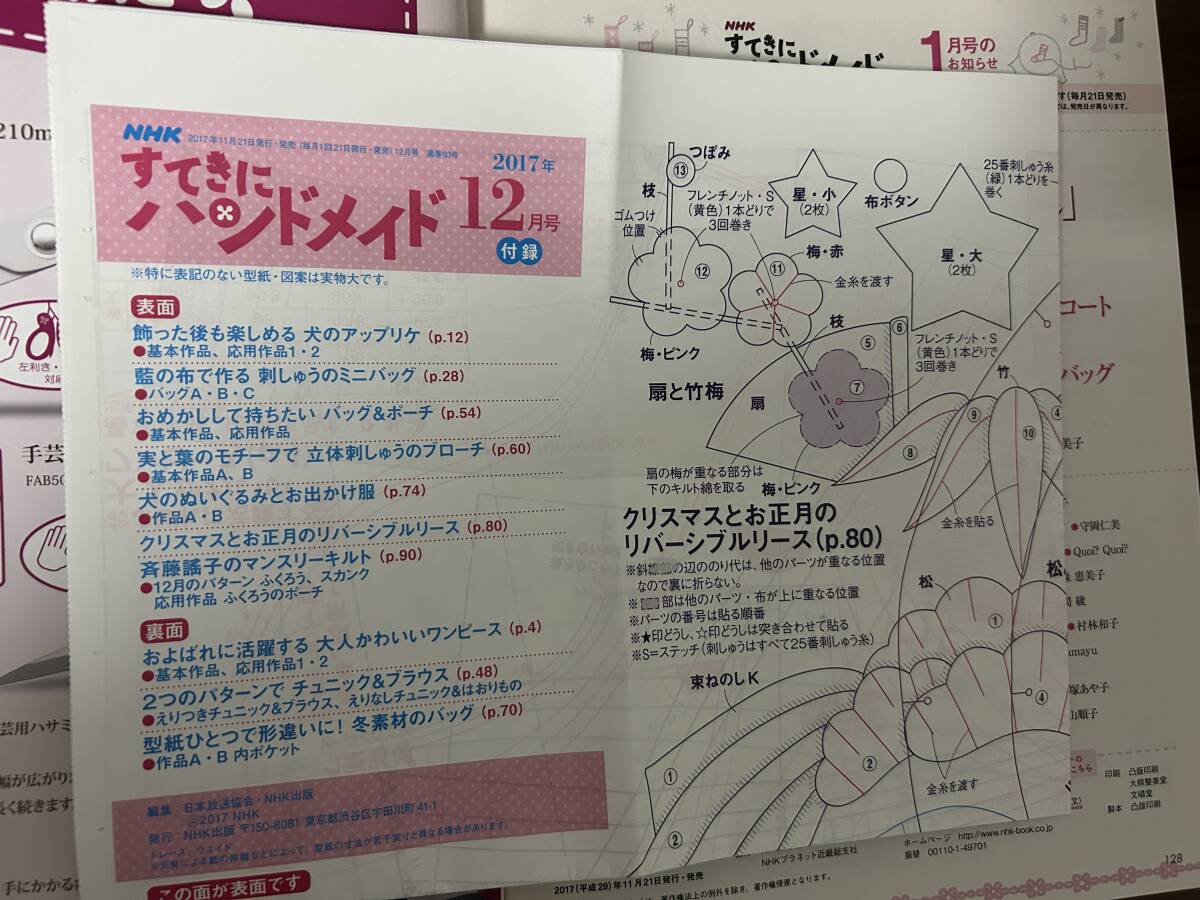 NHK
すてきに
1月号の
お知らせ
す(毎月21日発売)
では、発売日が異なります。
210m
NHK
2017年11月21日発行・発売(毎月1回21日発行・発売)12月号 通巻93号
すてきに
ハンドメイド
2017年
12月号
付録
※特に表記のない型紙・図案は実物大です。
表面
飾った後も楽しめる 犬のアップリケ (p.12)
●基本作品、応用作品1・2
藍の布で作る 刺しゅうのミニバッグ (p.28)
●バッグA・B・C
おめかしして持ちたい バッグ&ポーチ (p.54)
●基本作品、応用作品
実と葉のモチーフで 立体刺しゅうのブローチ (p.60)
●基本作品A、B
犬のぬいぐるみとお出かけ服 (p.74)
●作品A・B
クリスマスとお正月のリバーシブルリース (p.80)
斉藤謠子のマンスリーキルト (p.90)
●12月のパターン ふくろう、スカンク
応用作品 ふくろうのポーチ
裏面
およばれに活躍する 大人かわいいワンピース (p.4)
●基本作品、応用作品1・2
2つのパターンで チュニック&ブラウス (p.48)
●えりつきチュニック&ブラウス、えりなしチュニック&はおりもの
型紙ひとつで形違いに! 冬素材のバッグ (p.70)
●作品A・B 内ポケット
編集:日本放送協会・NHK出版
©2017 NHK
発行:NHK出版 〒150-8081 東京都渋谷区宇田川町 41-1
トレース ウエイド
※天候による紙の伸縮などによって、型紙の寸法が若干実寸と異なる場合があります。
この面が表面です
つぼみ
⑬
枝
ゴムつけ
位置
フレンチノット・S
(黄色)1本どりで
3回巻き
星・小
(2枚)
布ボタン
25番刺しゅう糸
(緑)1本どりを
巻く
星・大
(2枚)
梅・赤
⑪
⑫
金糸を渡す
梅・ピンク
枝
⑤
⑥
フレンチノット・S
(黄色)1本どりで
3回巻き
扇と竹梅
扇
⑦
竹
⑧
⑨
⑩
④
扇の梅が重なる部分は
下のキルト綿を取る
梅・ピンク
金糸を貼る
クリスマスとお正月の
リバーシブルリース(p.80)
※斜線部の辺ののり代は、他のパーツが重なる位置
なので裏に折らない。
※ 部は他のパーツ・布が上に重なる位置
※パーツの番号は貼る順番
※★印どうし、☆印どうしは突き合わせて貼る
※S=ステッチ(刺しゅうはすべて25番刺しゅう糸)
松
松
①
④
②
束ねのしK
①
②
金糸を渡す
コート
バッグ
美子
●守岡仁美
●Quoi? Quoi?
恵美子
綾
●村林和子
mayu
塚あや子
山順子
印刷 凸版印刷
大熊整美堂
文唱堂
製本 凸版印刷
ホームページ http://www.nhk-book.co.jp
振替 00110-1-49701
NHKプラネット近畿総支社
2017(平成29)年11月21日発行・発売
著作権法上の例外を除き、著作権侵害となります。
128
左利き・
対応
手芸
FAB50
芸用ハサミ
幅が広がり
長く続きます
手にかかる